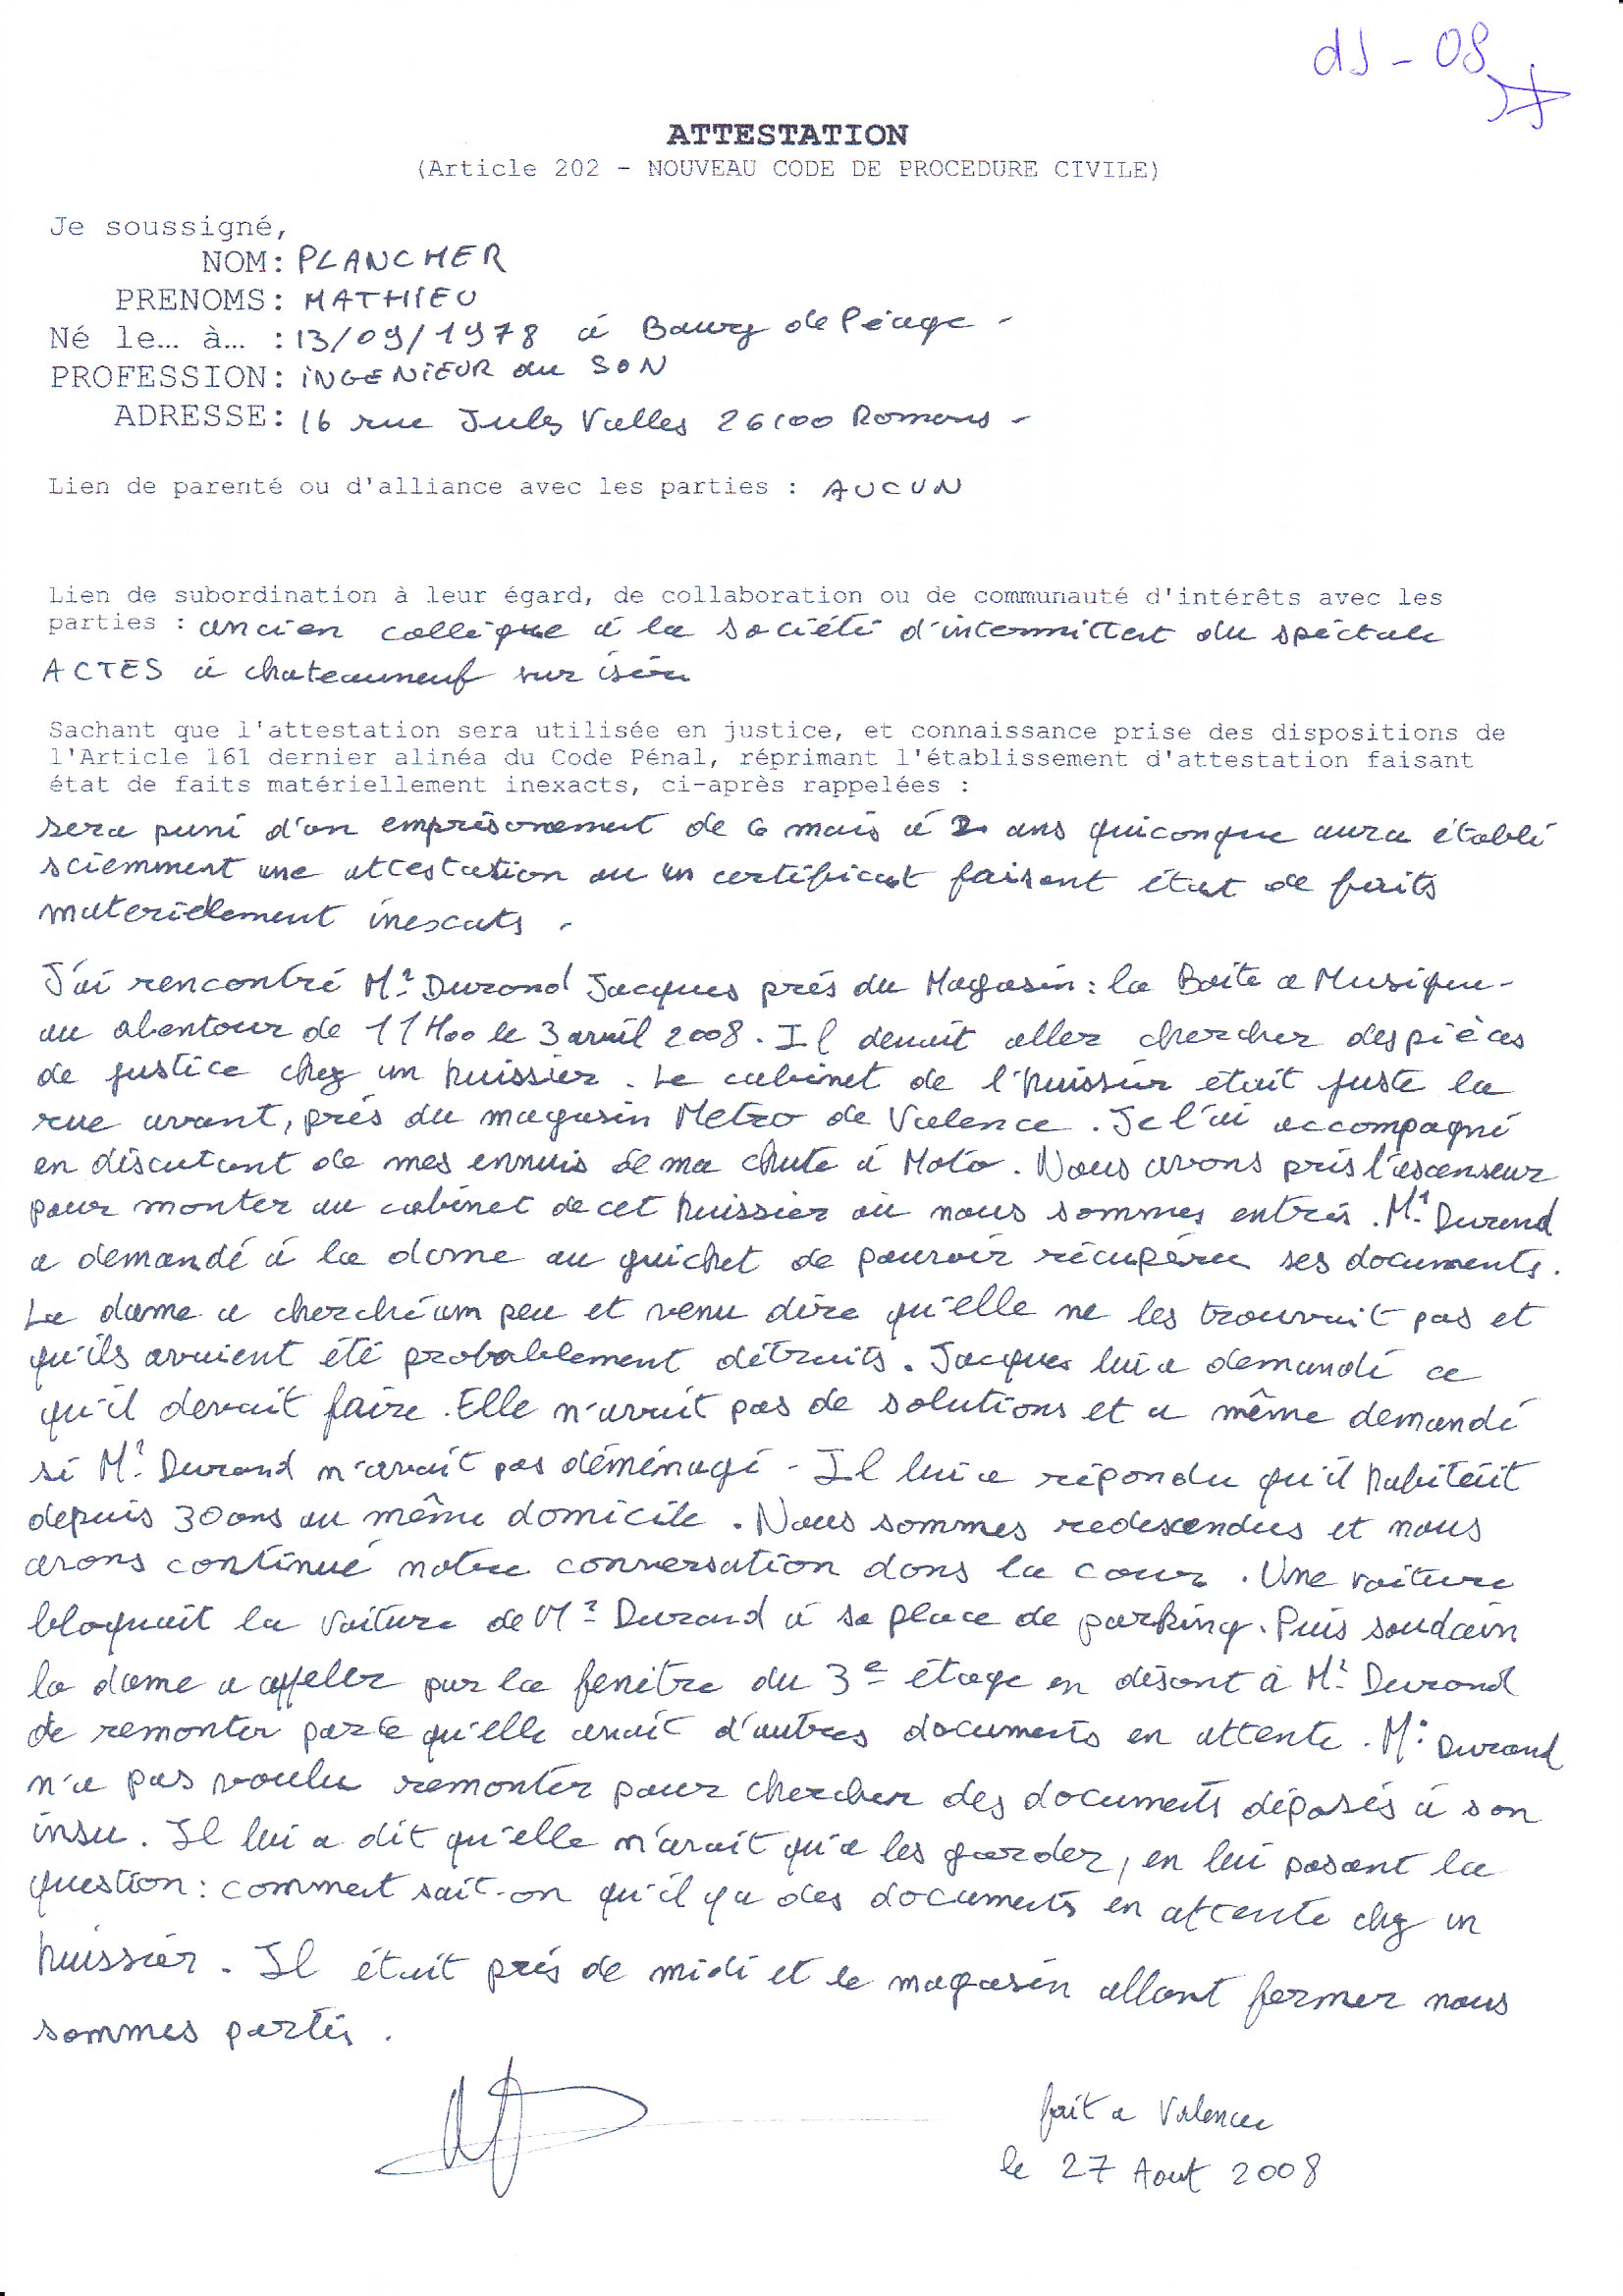 dJ - 08
ATTESTATION
(Article 202 - NOUVEAU CODE DE PROCEDURE CIVILE)
Je soussigné,
NOM: PLANCHER
PRENOMS: MATHIEU
Né le… à… : 13/09/1978 à Bourg de Péage -
PROFESSION: iNGENiEUR du SON
ADRESSE: 16 rue Jules Valles 26100 Romans -
Lien de parenté ou d'alliance avec les parties : AUCUN
Lien de subordination à leur égard, de collaboration ou de communauté d'intérêts avec les
parties : ancien collègue à la société d'intermittent du spéctale
ACTES à chateauneuf sur isère
Sachant que l'attestation sera utilisée en justice, et connaissance prise des dispositions de
l'Article 161 dernier alinéa du Code Pénal, réprimant l'établissement d'attestation faisant
état de faits matériellement inexacts, ci-après rappelées :
sera puni d'un emprisonement de 6 mois à 2 ans quiconque aura établi
sciemment une attestation ou un certificat faisant état de faits
materiellement inexcats .
J'ai rencontré Mr Durand Jacques près du Magasin : la Boite a Musique -
au abentour de 11H00 le 3 avril 2008. Il devait aller chercher des pièces
de justice chez un huissier. Le cabinet de l'huissier était juste la
rue avant, près du magasin Metro de Valence. Je l'ai accompagné
en discutant de mes ennuis de ma chute à Moto. Nous avons pris l'ascenseur
pour monter au cabinet de cet huissier où nous sommes entrés. Mr Durand
a demandé à la dame au guichet de pouvoir récupérer ses documents.
La dame a cherché un peu et venu dire qu'elle ne les trouvait pas et
qu'ils avaient été probablement détruits. Jacques lui a demandé ce
qu'il devait faire. Elle n'avait pas de solutions et a même demandé
si Mr Durand n'avait pas déménagé - Il lui a répondu qu'il habitait
depuis 30 ans au même domicile. Nous sommes redescendus et nous
avons continué notre conversation dans la cour. Une voiture
bloquait la voiture de Mr Durand à sa place de parking. Puis soudain
la dame a appeler par la fenêtre du 3e étage en disant à Mr Durand
de remonter parce qu'elle avait d'autres documents en attente. Mr Durand
n'a pas voulu remonter pour chercher des documents déposés à son
insu. Il lui a dit qu'elle n'avait qu'a les garder, en lui posant la
question : comment sait-on qu'il y a des documents en attente chez un
huissier. Il était près de midi et le magasin allant fermer nous
sommes partis.
fait a Valence
le 27 Aout 2008